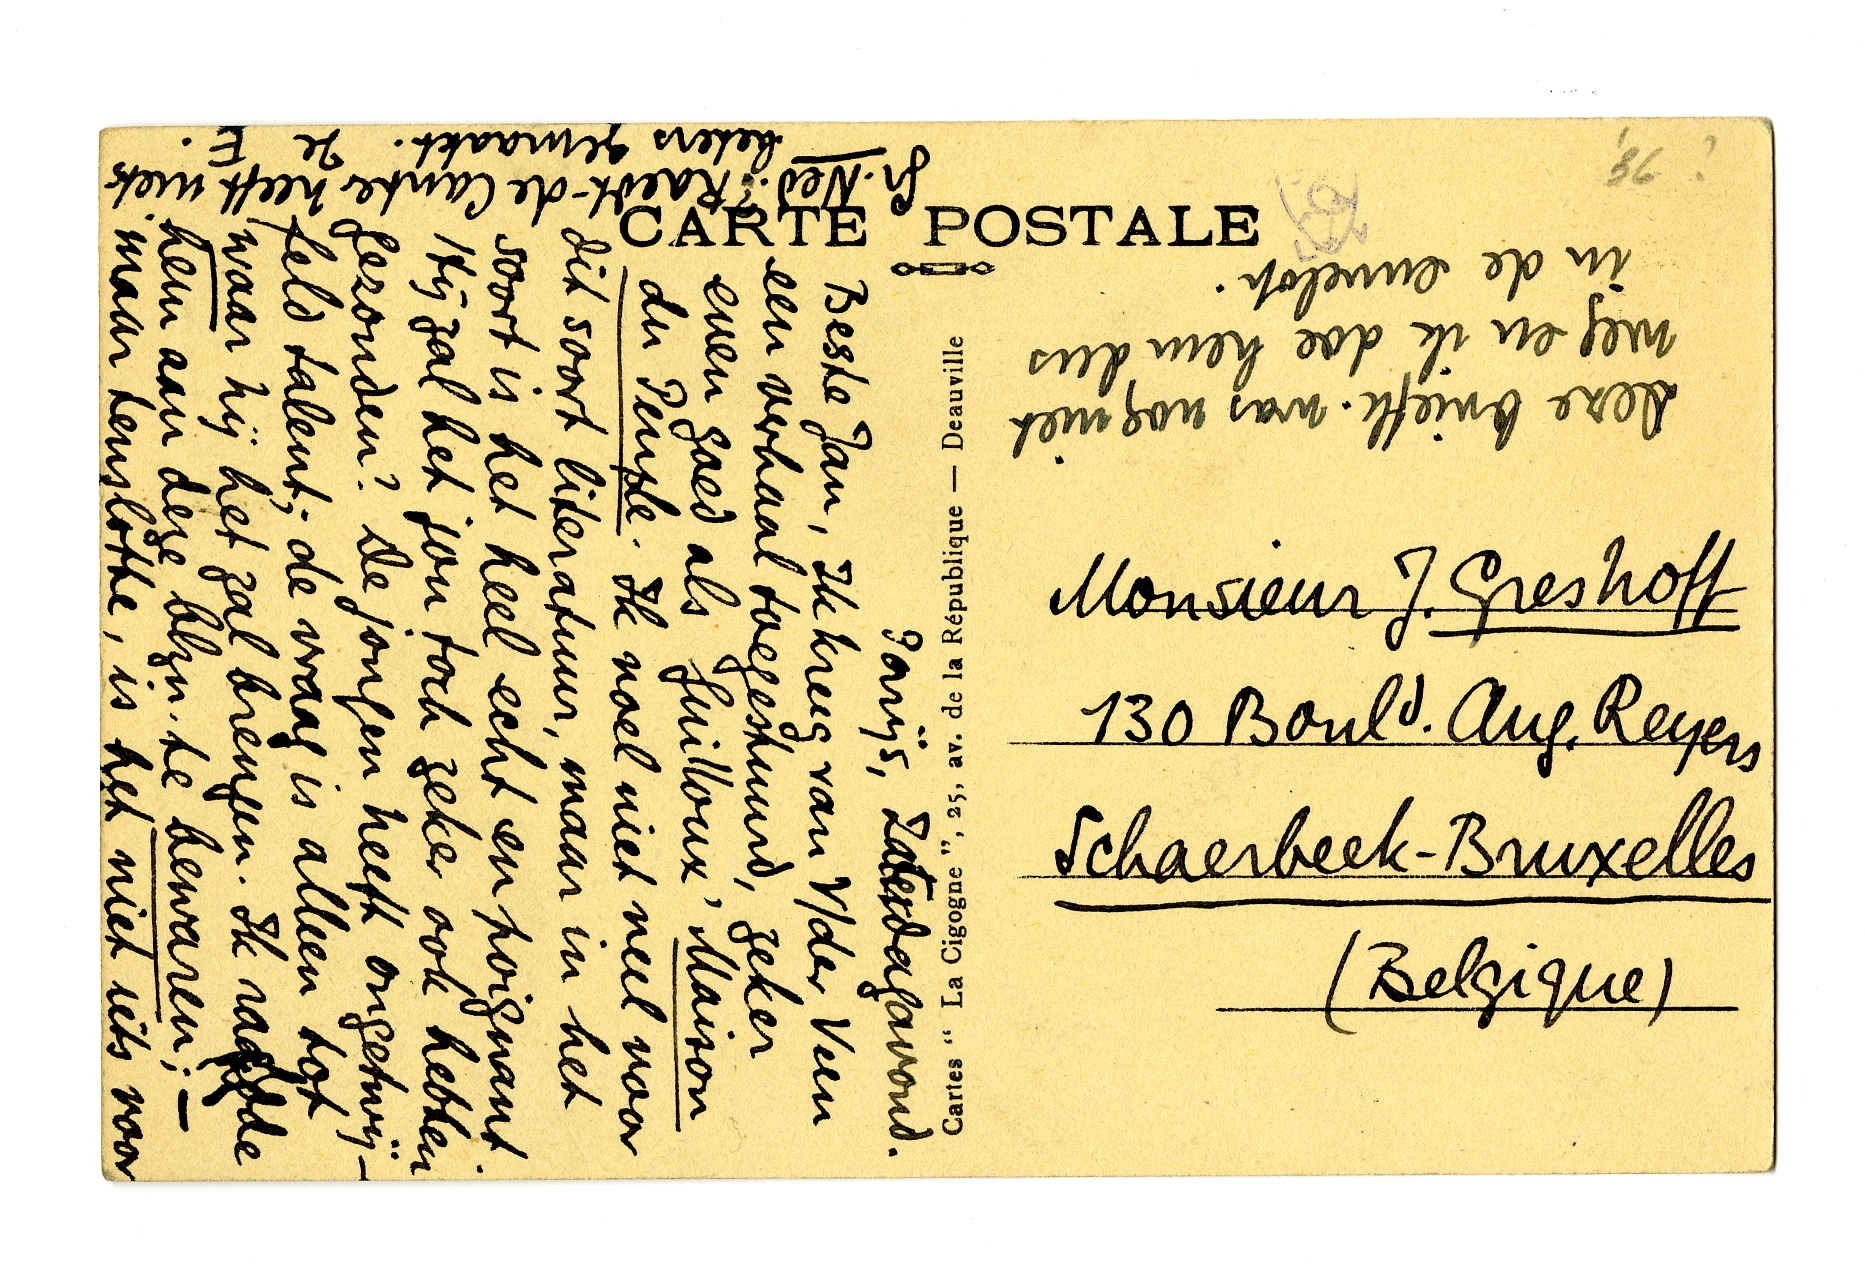 CARTE POSTALE
'36 ?
Parijs, Zaterdagavond.
Beste Jan, Ik kreeg van V/der Veen
een verhaal toegestuurd, zeker
even goed als Guilloux' Maison
du Peuple. Ik voel niet veel voor
dit soort literatuur, maar in het
soort is het heel echt en poignant.
Hij zal het jou toch zeker ook hebben
gezonden? De jongen heeft ongetwij-
feld talent; de vraag is alleen tot
waar hij het zal brengen. Ik raadde
hem aan deze blzn. te bewaren; —
maar tenslotte, is het niet iets voor
Gr. Ned.? Raedt-de Canter heeft niet
beters gemaakt. Je
E.
Cartes " La Cigogne ", 25, av. de la République — Deauville
Deze briefk. was nog niet
weg en ik doe hem dus
in de envelop.
Monsieur J. Greshoff
130 Bould. Aug. Reyers
Schaerbeek-Bruxelles
(Belgique)